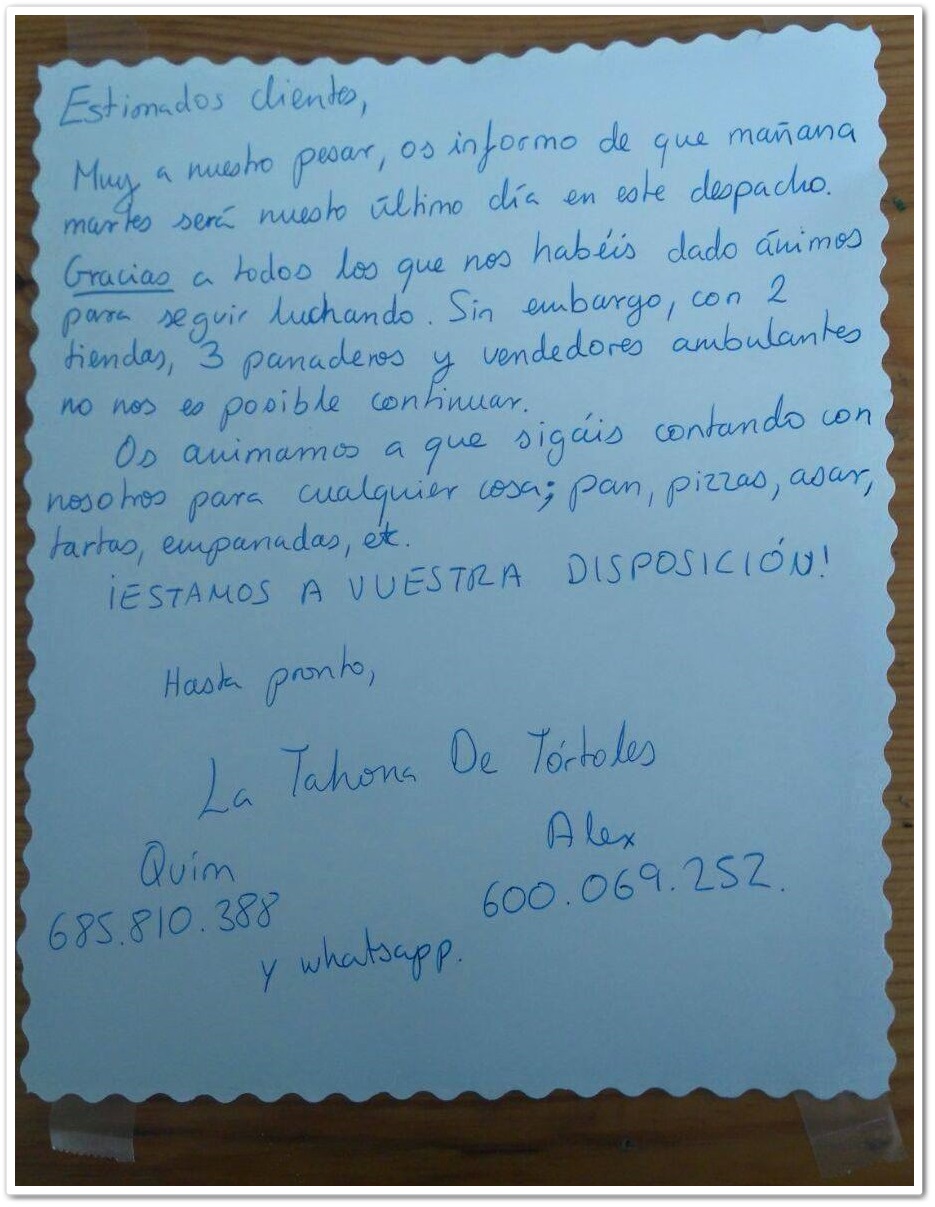 Estimados clientes,
Muy a nuestro pesar, os informo de que mañana
martes será nuesto último día en este despacho.
Gracias a todos los que nos habéis dado ánimos
para seguir luchando. Sin embargo, con 2
tiendas, 3 panaderos y vendedores ambulantes
no nos es posible continuar.
Os animamos a que sigáis contando con
nosotros para cualquier cosa; pan, pizzas, asar,
tartas, empanadas, etc.
¡ESTAMOS A VUESTRA DISPOSICIÓN!
Hasta pronto,
La Tahona De Tórtoles
Quim Alex
685.810.388 600.069.252.
y whatsapp.